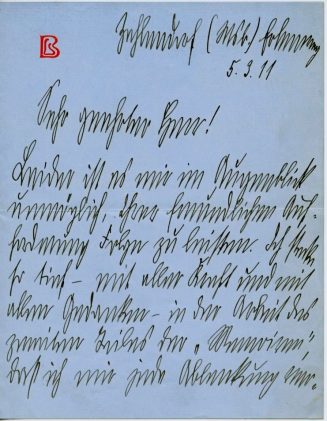 LB
Zehlendorf (Wsb.) Erlenweg
5.3.11
Sehr geehrter Herr!
Leider ist es mir im Augenblick
unmöglich, Ihrer freundlichen Auf-
forderung Folge zu leisten. Ich stecke
so tief – mit aller Kraft und mit
allen Gedanken – in der Arbeit des
zweiten Teiles der „Memoiren",
daß ich mir jede Ablenkung ver-